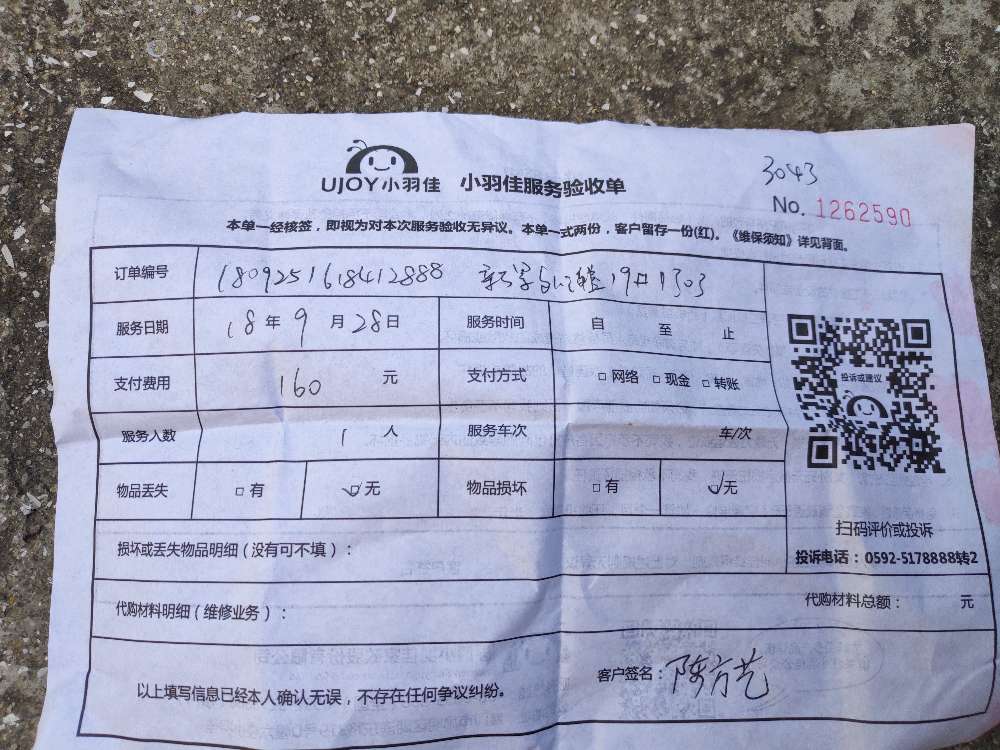 3043
UJOY小羽佳 小羽佳服务验收单
No. 1262590
本单一经核签，即视为对本次服务验收无异议。本单一式两份，客户留存一份(红)。《维保须知》详见背面。
订单编号 1809251618412888 19 1303
服务日期 18 年 9 月 28 日 服务时间 自 至 止
支付费用 160 元 支付方式 □ 网络 □ 现金 □ 转账
投诉或建议
服务人数 1 人 服务车次 车/次
物品丢失 □ 有 ☑ 无 物品损坏 □ 有 ☑ 无
扫码评价或投诉
损坏或丢失物品明细（没有可不填）：
投诉电话：0592-5178888转2
代购材料明细（维修业务）：
代购材料总额： 元
客户签名：陈方艺
以上填写信息已经本人确认无误，不存在任何争议纠纷。